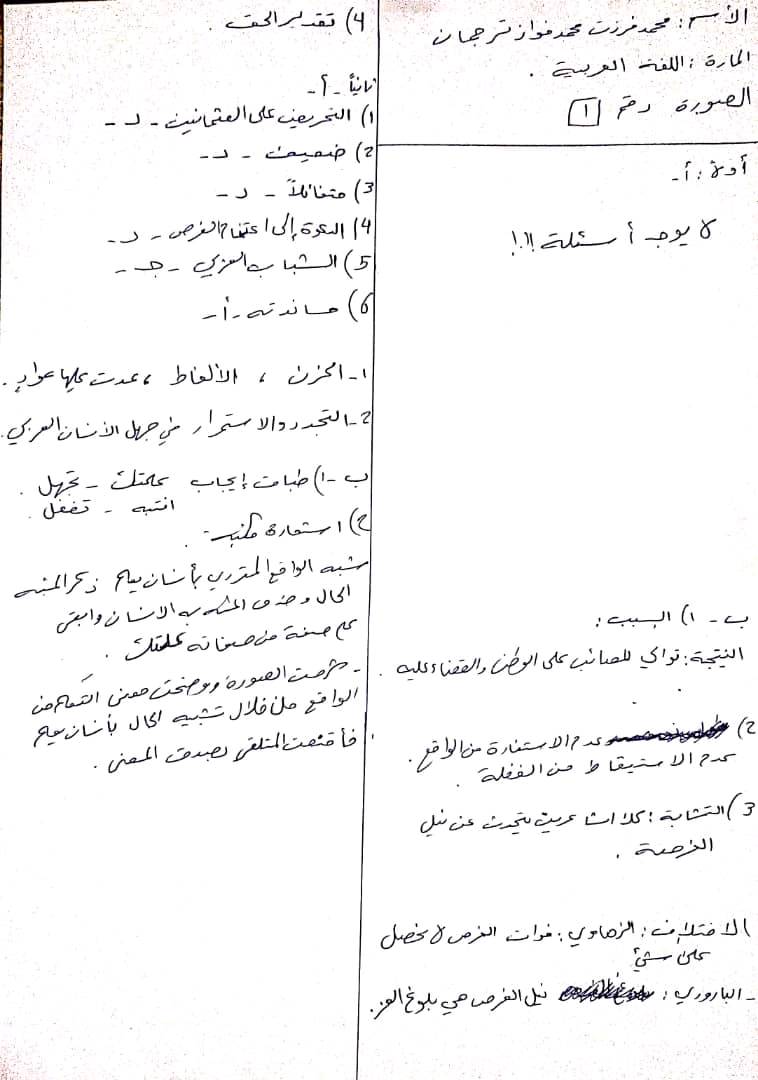 الأسم : محمد فرزت محمد فواز ترجمان
المادة : اللغة العربية .
الصورة رقم 1
أولاً : أ-
لا يوجد أسئلة !!!
ب - 1) السبب :
النتيجة : توالي المصائب على الوطن والقضاء عليه .
2) عدم الاستفادة من الواقع .
عدم الاستيقاظ من الغفلة .
3) التشابة : كلا الشاعرين يتحدث عن نيل
الفرصة .
الاختلاف : الزهاوي : فوات الفرص لا يحصل
على شيء
- البارودي : نيل الفرص هي بلوغ العز .
4) تقدير الحق .
ثانياً - أ-
1) التحريض على العثمانين - د -
2) ضعيف - د -
3) متفائلاً - د -
4) الدعوة إلى اغتنام الفرص - د -
5) الشباب العربي - جـ -
6) مساندته - أ -
1- الحزن ، الألفاظ ، عدت عليها عوادٍ .
2- التجدد والاستمرار في جهل الأنسان العربي .
ب - 1) طباق إيجاب علمتك - تجهل .
انتبه - تغفل .
2) استعارة مكنية .
شبه الواقع المتردي بأنسان يعلم ذكر المشبه
الحال وحذف المشبه به الانسان وابقى
على صفة من صفاته علمتك .
- شرحت الصورة ووضحت معنى التعلم من
الواقع من خلال تشبيه الحال بأنسان يعلم
فأقنعت المتلقي بصدق المعنى .